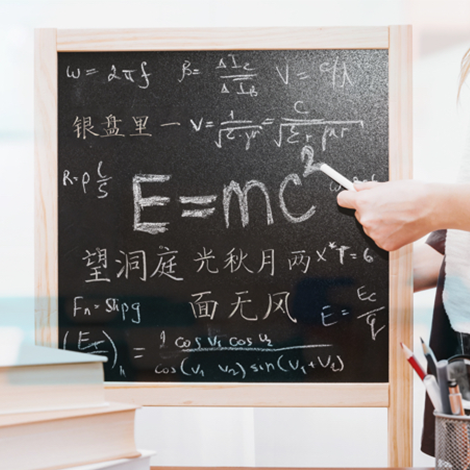 ω = 2πf β = ΔIc/ΔIB V = c/λ
银盘里一 v = 1/√(ε·μr) = c/√(εr μr)
R = ρ l/S
E=mc²
望洞庭 光秋月两 x*T = 6
Fn = Sℓρg 面无风 E = Ec/q
= cos v₁ cos v₂
cos(v₁ v₂) sin(v₁+v₂)